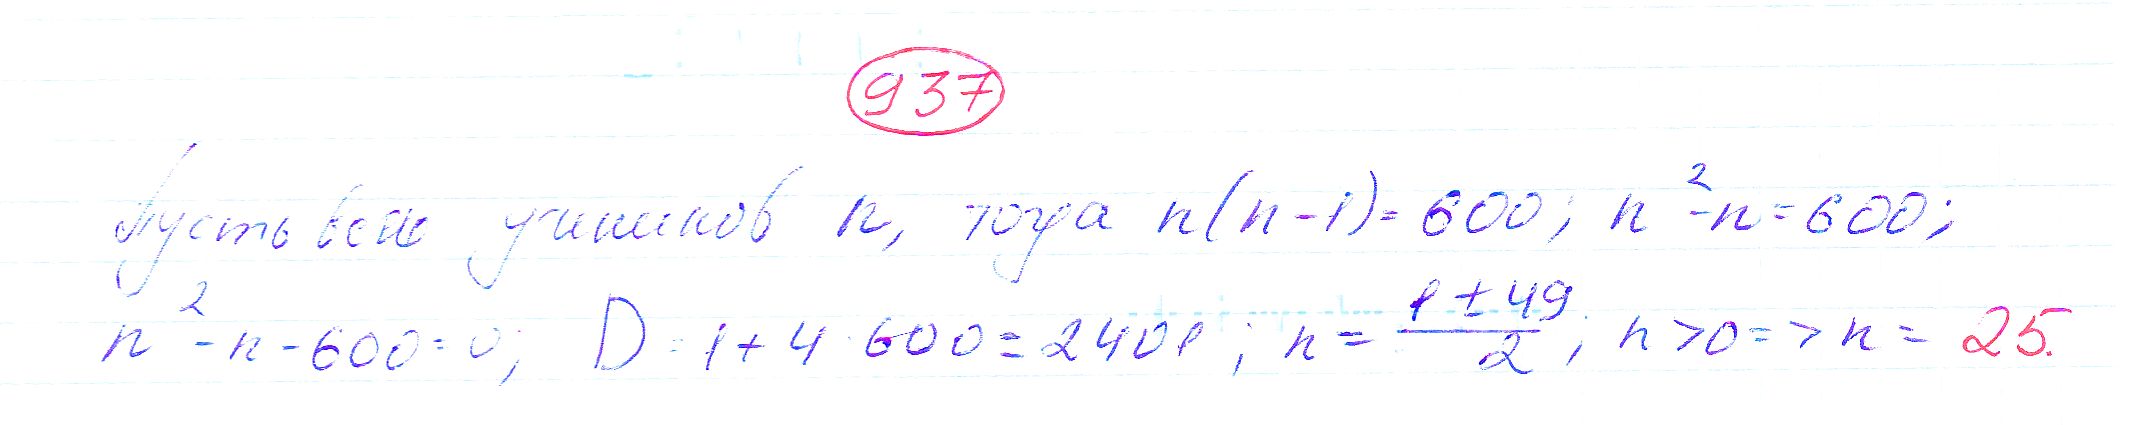 937
Пусть всех учеников n, тогда n(n-1)=600; n²-n=600;
n²-n-600=0; D=1+4·600=2401; n=(1±49)/2; n>0=>n=25.